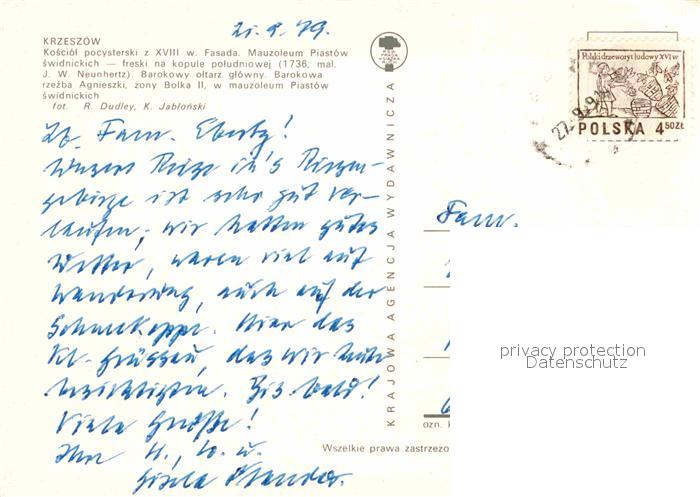 21.8.79.
KRZESZÓW
Kościół pocysterski z XVIII w. Fasada. Mauzoleum Piastów
świdnickich — freski na kopule południowej (1736, mal.
J. W. Neunhertz). Barokowy ołtarz główny. Barokowa
rzeźba Agnieszki, zony Bolka II, w mauzoleum Piastów
świdnickich
fot. R. Dudley, K. Jabłoński
Lb. Fam. Ebertz!
Unsere Reise in's Riesen-
gebirge ist sehr gut ver-
laufen; wir hatten gutes
Wetter, waren viel auf
Wanderung, auch auf der
Schneekoppe. Hier das
Kl. Grüssau, das wir heute
besichtigten. Bis bald!
Viele Grüße!
Ihre H., u.
Gisela
KRAJOWA AGENCJA WYDAWNICZA
Polski drzeworyt ludowy XVI w
POLSKA 4 50ZŁ
Fam.
privacy protection
Datenschutz
ozn.
Wszelkie prawa zastrzeżo